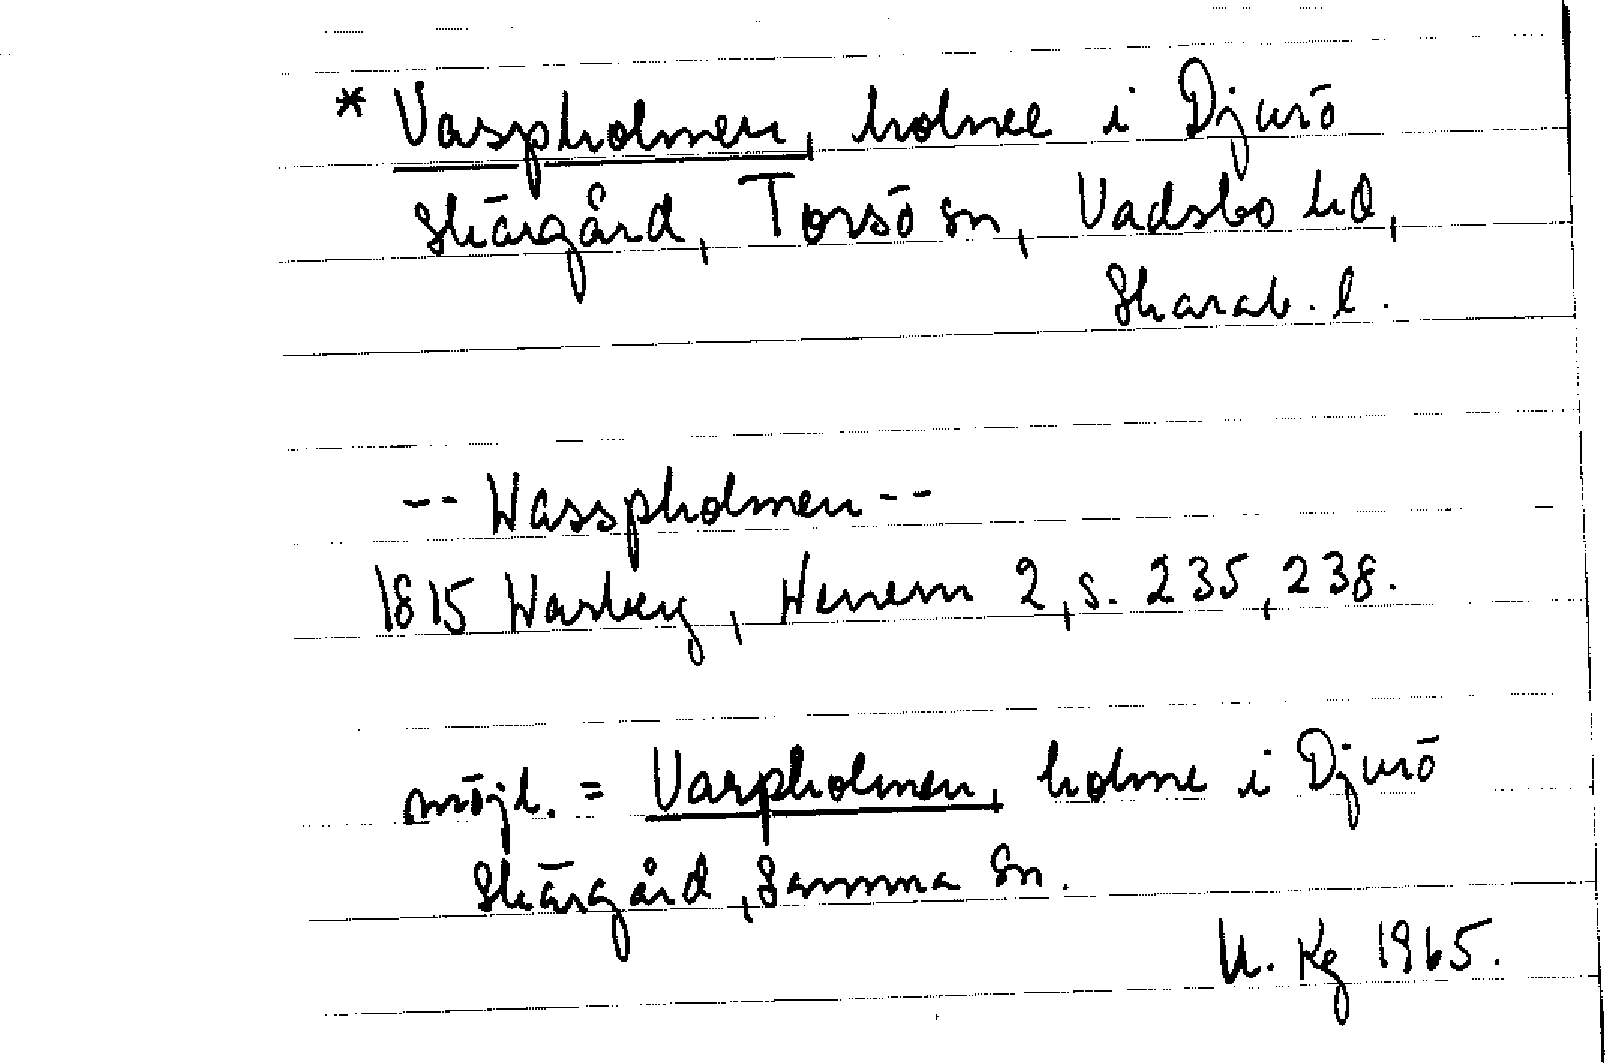 * Vaspholmen, holme i Djurö
skärgård, Torsö sn, Vadsbo hd,
Skarab. l.
-- Wasspholmen --
1815 Warberg, Wenern 2, s. 235, 238.
möjl. = Varpholmen, holme i Djurö
skärgård, samma sn.
U. Kg 1965.